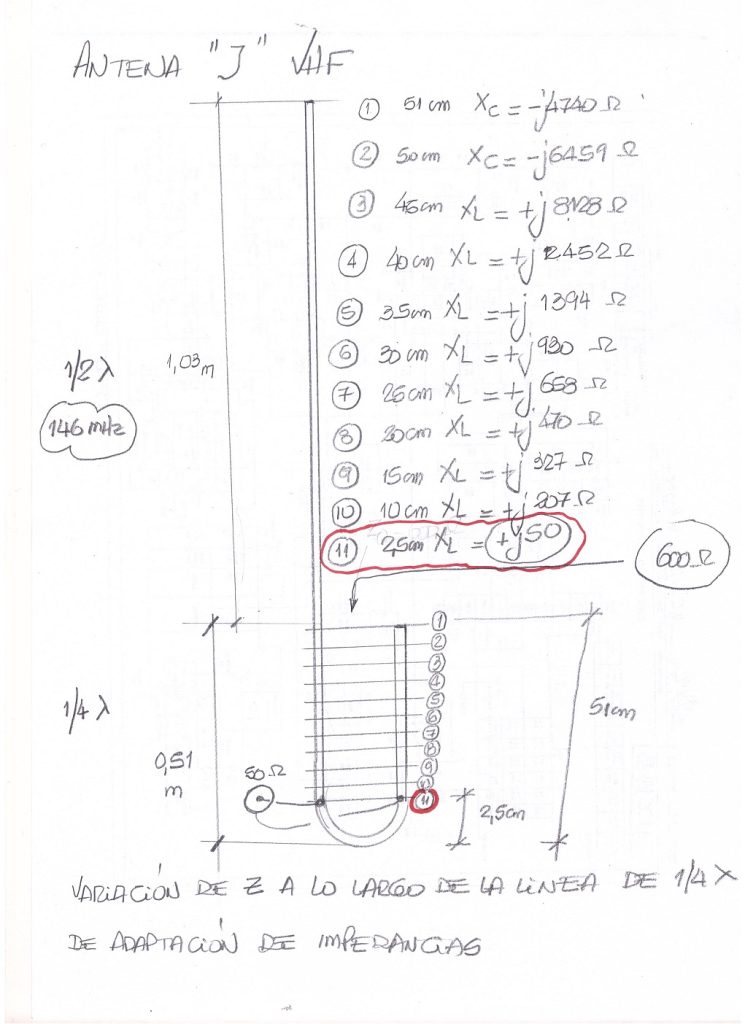 ANTENA "J" VHF
① 51cm XC = -j4740 Ω
② 50cm XC = -j6459 Ω
③ 45cm XL = +j 8128 Ω
④ 40cm XL = +j 2452 Ω
⑤ 35cm XL = +j 1394 Ω
⑥ 30cm XL = +j 930 Ω
⑦ 25cm XL = +j 658 Ω
⑧ 20cm XL = +j 470 Ω
⑨ 15cm XL = +j 327 Ω
⑩ 10cm XL = +j 207 Ω
⑪ 2,5cm XL = +j50
1,03m
1/2 λ
146 mHz
600Ω
①
②
③
④
⑤
⑥
⑦
⑧
⑨
⑩
⑪
1/4 λ
0,51
m
51cm
50Ω
2,5cm
VARIACIÓN DE Z A LO LARGO DE LA LINEA DE 1/4 λ
DE ADAPTACIÓN DE IMPERANCIAS